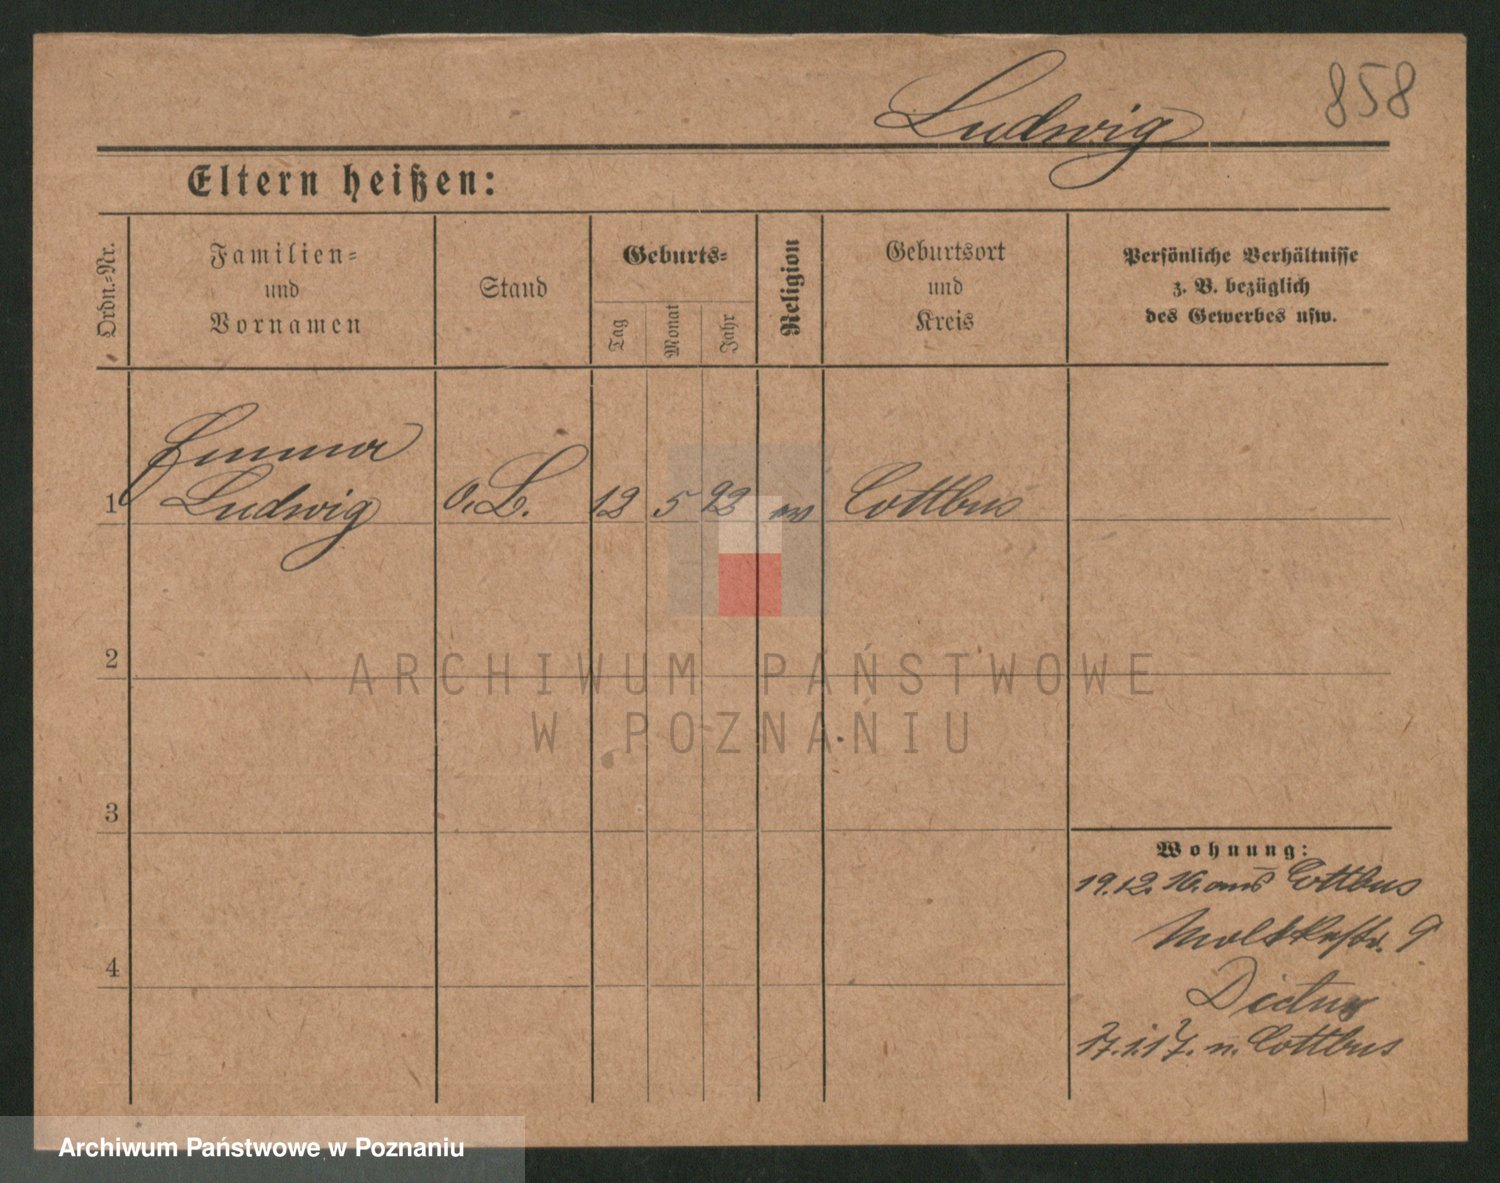 858
Ludwig
Eltern heißen:
Ordn.=Nr.
Familien=
und
Vornamen
Stand
Geburts=
Tag
Monat
Jahr
Religion
Geburtsort
und
Kreis
Persönliche Verhältnisse
z. B. bezüglich
des Gewerbes usw.
Emma
1 Ludwig o. B. 12 5 92 ev Cottbus
2
3
4
Wohnung:
19.12.16. aus Cottbus
Moltkestr. 9
17.1.17. n. Cottbus
ARCHIWUM PAŃSTWOWE
W POZNANIU
Archiwum Państwowe w Poznaniu